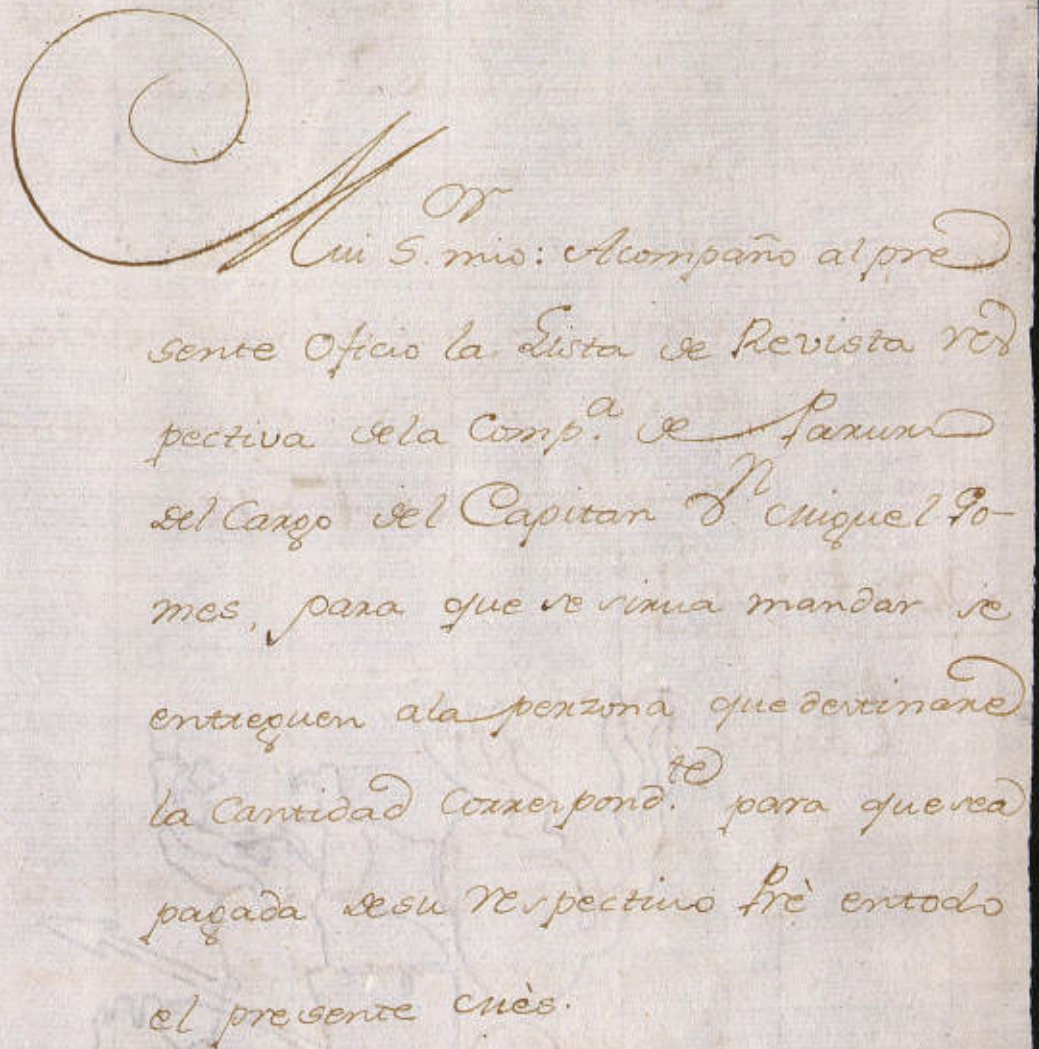 Mui S.or mio: Acompaño al pre
sente Oficio la Lista de Revista res
pectiva dela Comp.a de Paruro
del Cargo del Capitan D.n Miguel Go-
mes, para que se sirua mandar se
entreguen ala perzona que destinare
la Cantidad Correspond.te para que sea
pagada desu respectiuo Prè entodo
el presente Mès.